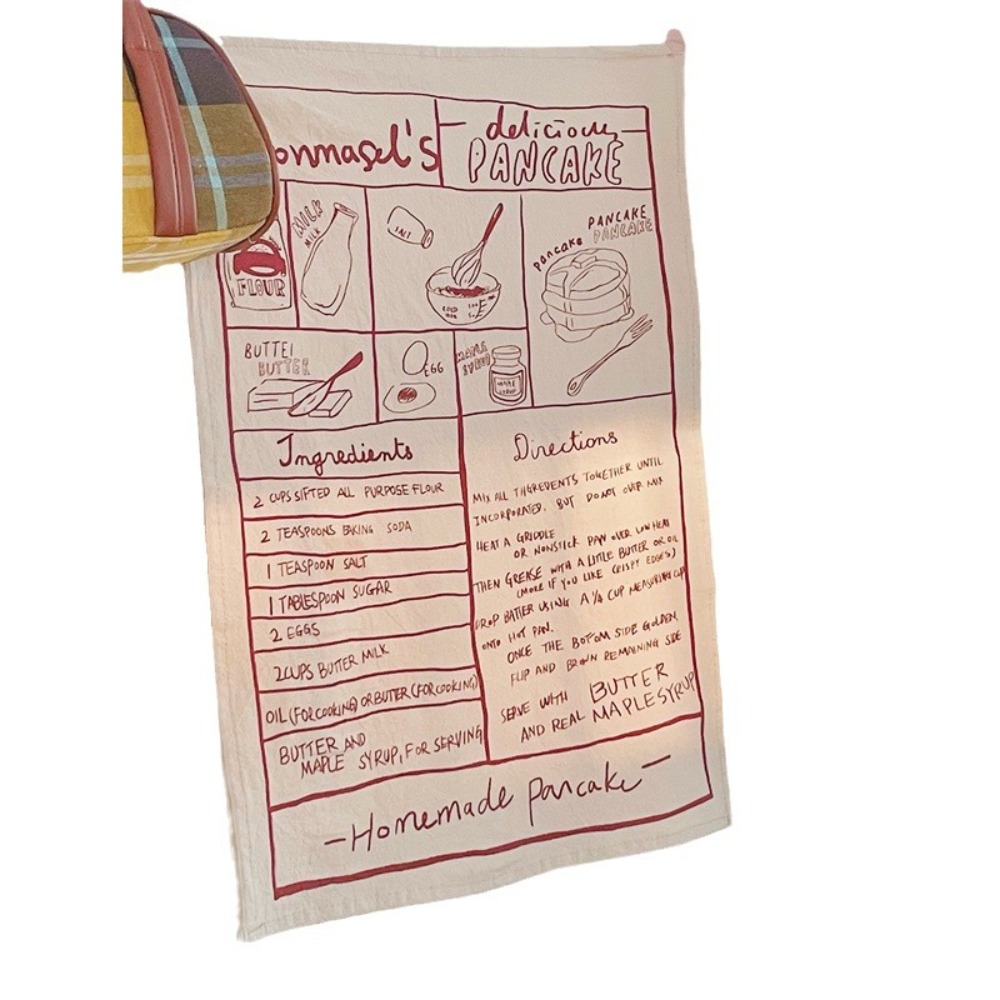 delicious
PANCAKE
FLOUR
MILK
MILK
SALT
PANCAKE
PANCAKE
Pancake
BUTTER
EGG
MAPLE
SYRUP
MAPLE
SYRUP
Ingredients
2 CUPS SIFTED ALL PURPOSE FLOUR
2 TEASPOONS BAKING SODA
1 TEASPOON SALT
1 TABLESPOON SUGAR
2 EGGS
2 CUPS BUTTER MILK
OIL (FOR COOKING) OR BUTTER (FOR COOKING)
BUTTER AND
MAPLE SYRUP, FOR SERVING
Directions
MIX ALL THGREDENTS TOGETHER UNTIL
INCORPORATED. BUT DO NOT OVER MIX
HEAT A GRIDDLE
OR NONSTICK PAN OVER LOW HEAT
THEN GREASE WITH A LITTLE BUTTER OR OIL
(MORE IF YOU LIKE CRISPY EDGES)
DROP BATTER USING A 1/4 CUP MEASURING CUP
ONTO HOT PAN.
ONCE THE BOTTOM SIDE GOLDEN,
FLIP AND BROWN REMAINING SIDE
SERVE WITH BUTTER
AND REAL MAPLE SYRUP
-Homemade pancake-